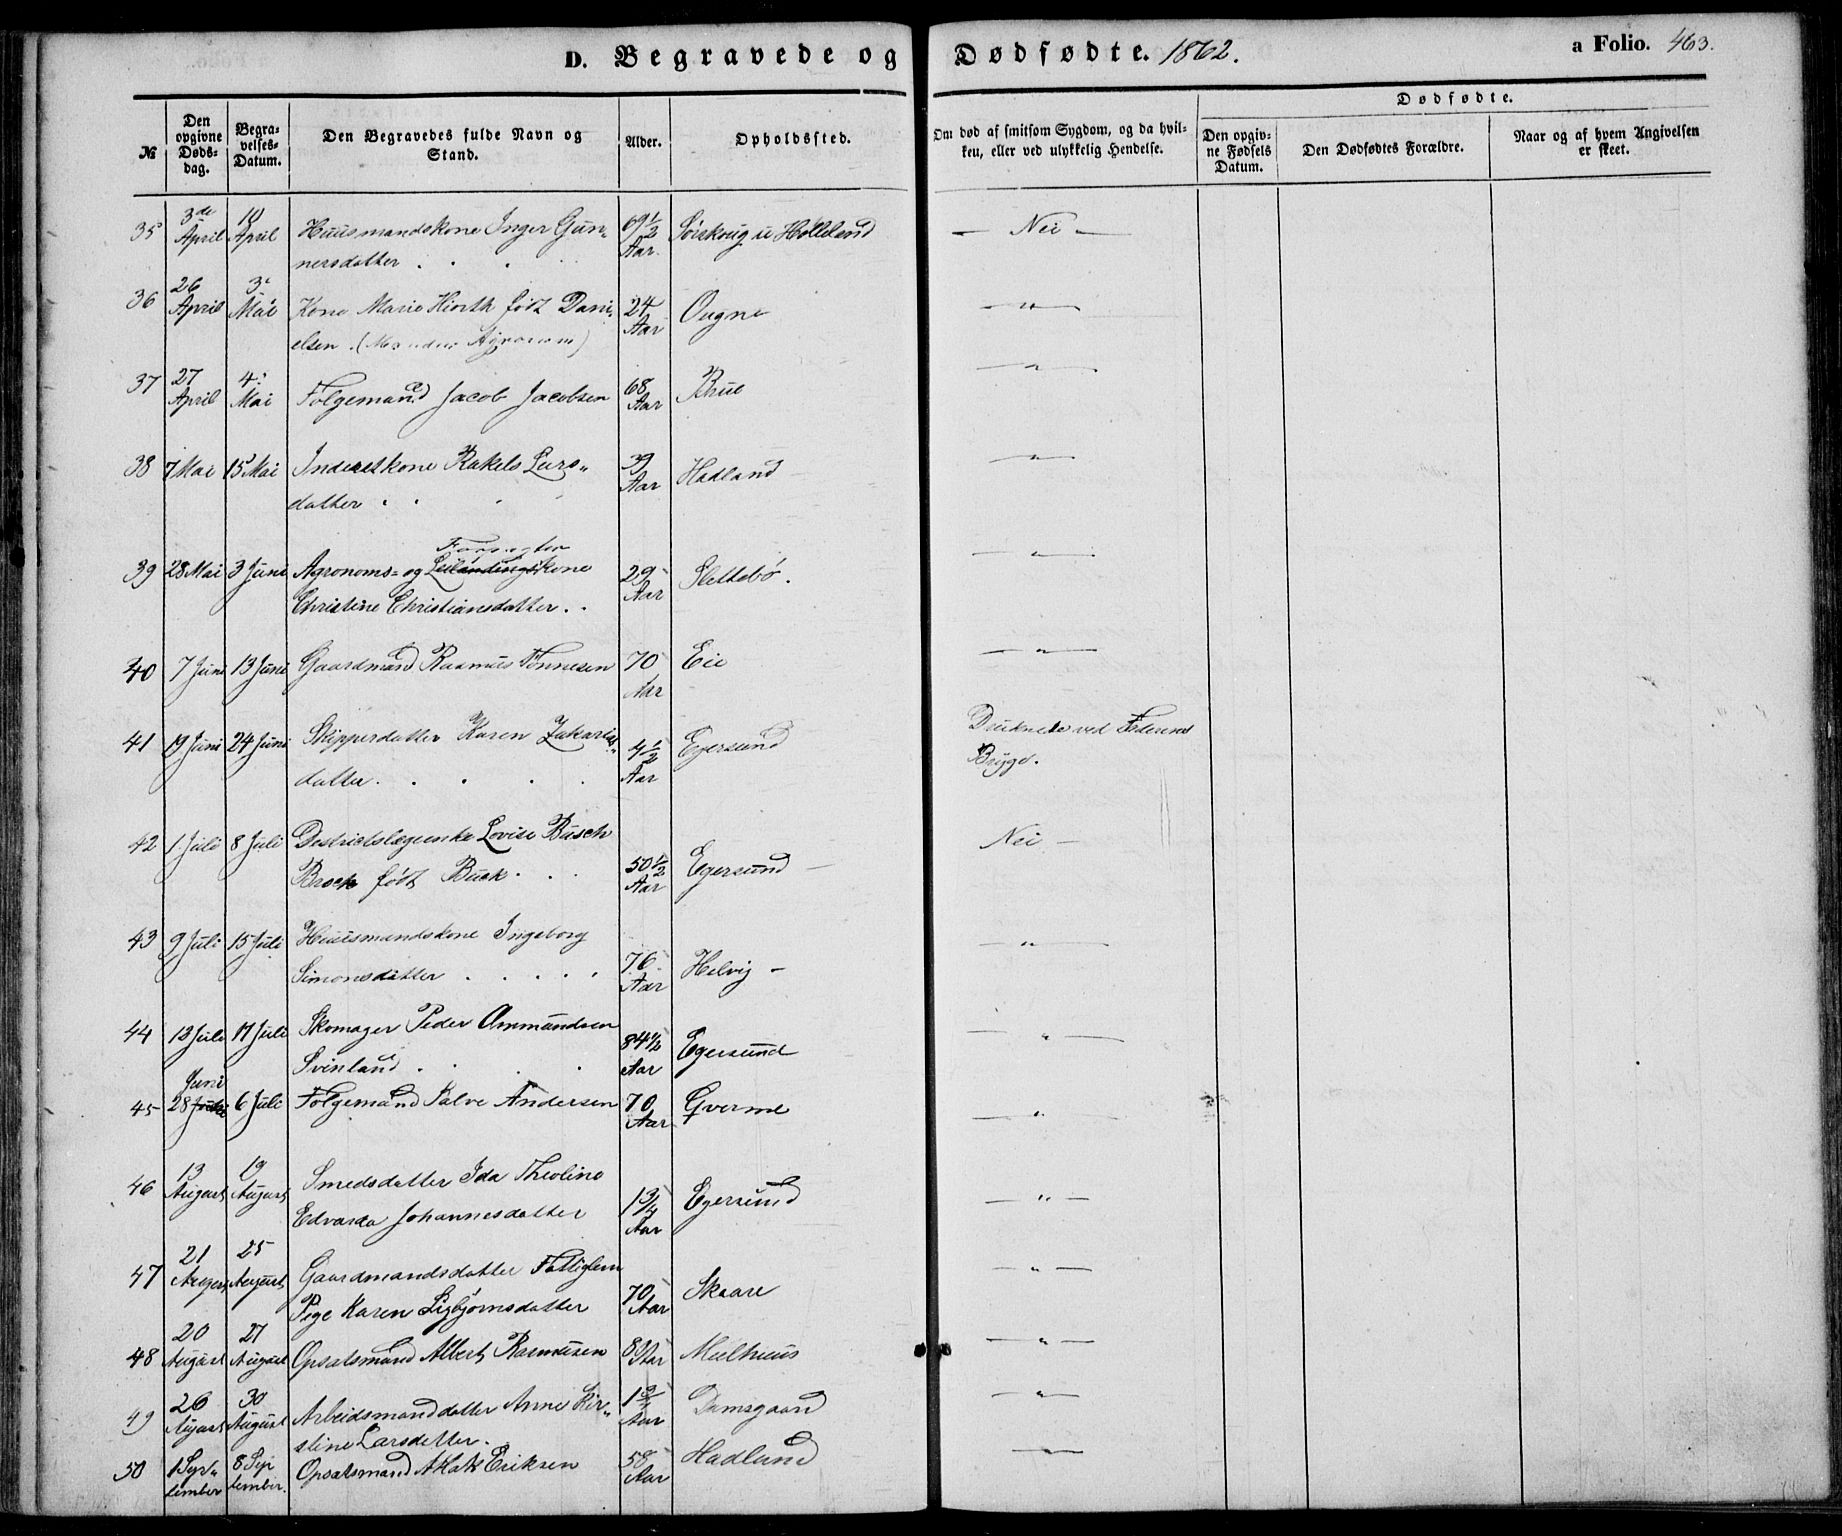 D. Begravede og Dødfødte. 1862. a Folio. 463.
№ Den opgivne Døds-dag. Begra-velses-Datum. Den Begravedes fulde Navn og Stand. Alder. Opholdssted. Om død af smitsom Sygdom, og da hvil-ken, eller ved ulykkelig Hendelse. Dødfødte. Den opgiv-ne Fødsels Datum. Den Dødfødtes Forældre. Naar og af hvem Angivelsen er skeet.
35 3de April 10 April Huusmandskone Inger Gun- 69½ Aar. u Hølleland — Nei —
nersdatter
36 26 April 3. Mai Kone Marie Hiorth født Dani- 24 Aar Ougne — " —
elsen. (Manden Agronom)
37 27 April 4. Mai Følgemand Jacob Jacobsen 68 Aar Khue — " —
38 7 Mai 15 Mai Inderstkone Rakels Lars- 39 Aar Hadland — " —
datter
Forpagter
39 28 Mai 3 Juni Agronoms- og Leilændingskone 29 Aar Slettebø. — " —
Christine Christiansdatter.
40 7 Juni 13 Juni Gaardmand Rasmus Tønnesen 70 Aar Eie — " —
41 19 Juni 24 Juni Skipperdatter Karen Zakarias- 4½ Aar Egersund Druknede ved Federens
datter. Brygge.
42 1 Juli 8 Juli Destrictslægeenke Lovise Busch Nei —
Brock født Buck 50½ Aar Egersund —
43 9 Juli 15 Juli Huusmandskone Ingeborg — " —
Simonsdatter 76 Aar Helvig —
44 13 Juli 17 Juli Skomager Peder Ommundsen — " —
Svinland 84½ Aar Egersund
Juni
45 28 Juli 6 Juli Følgemand Salve Andersen 70 Aar Qverme — " —
46 13 August 19 August Smedsdatter Ida Theoline
Edvarda Johannesdatter 1¾ Aar Egersund — " —
47 21 August 25 August Gaardmandsdatter Fattiglem — " —
Pige Karen Sigbjørnsdatter 70 Aar Skaare
48 20 August 27 August Opsatsmand Albert Rasmusen 89 Aar Mælhuus — " —
49 26 August 30 August Arbeidsmanddatter Anne Kir- Aar Damsgaard — " —
stine Larsdatter.
50 1 Sep-tember 8 Sep tember. Opsatsmand Eriksen 58 Aar Hadland — " —